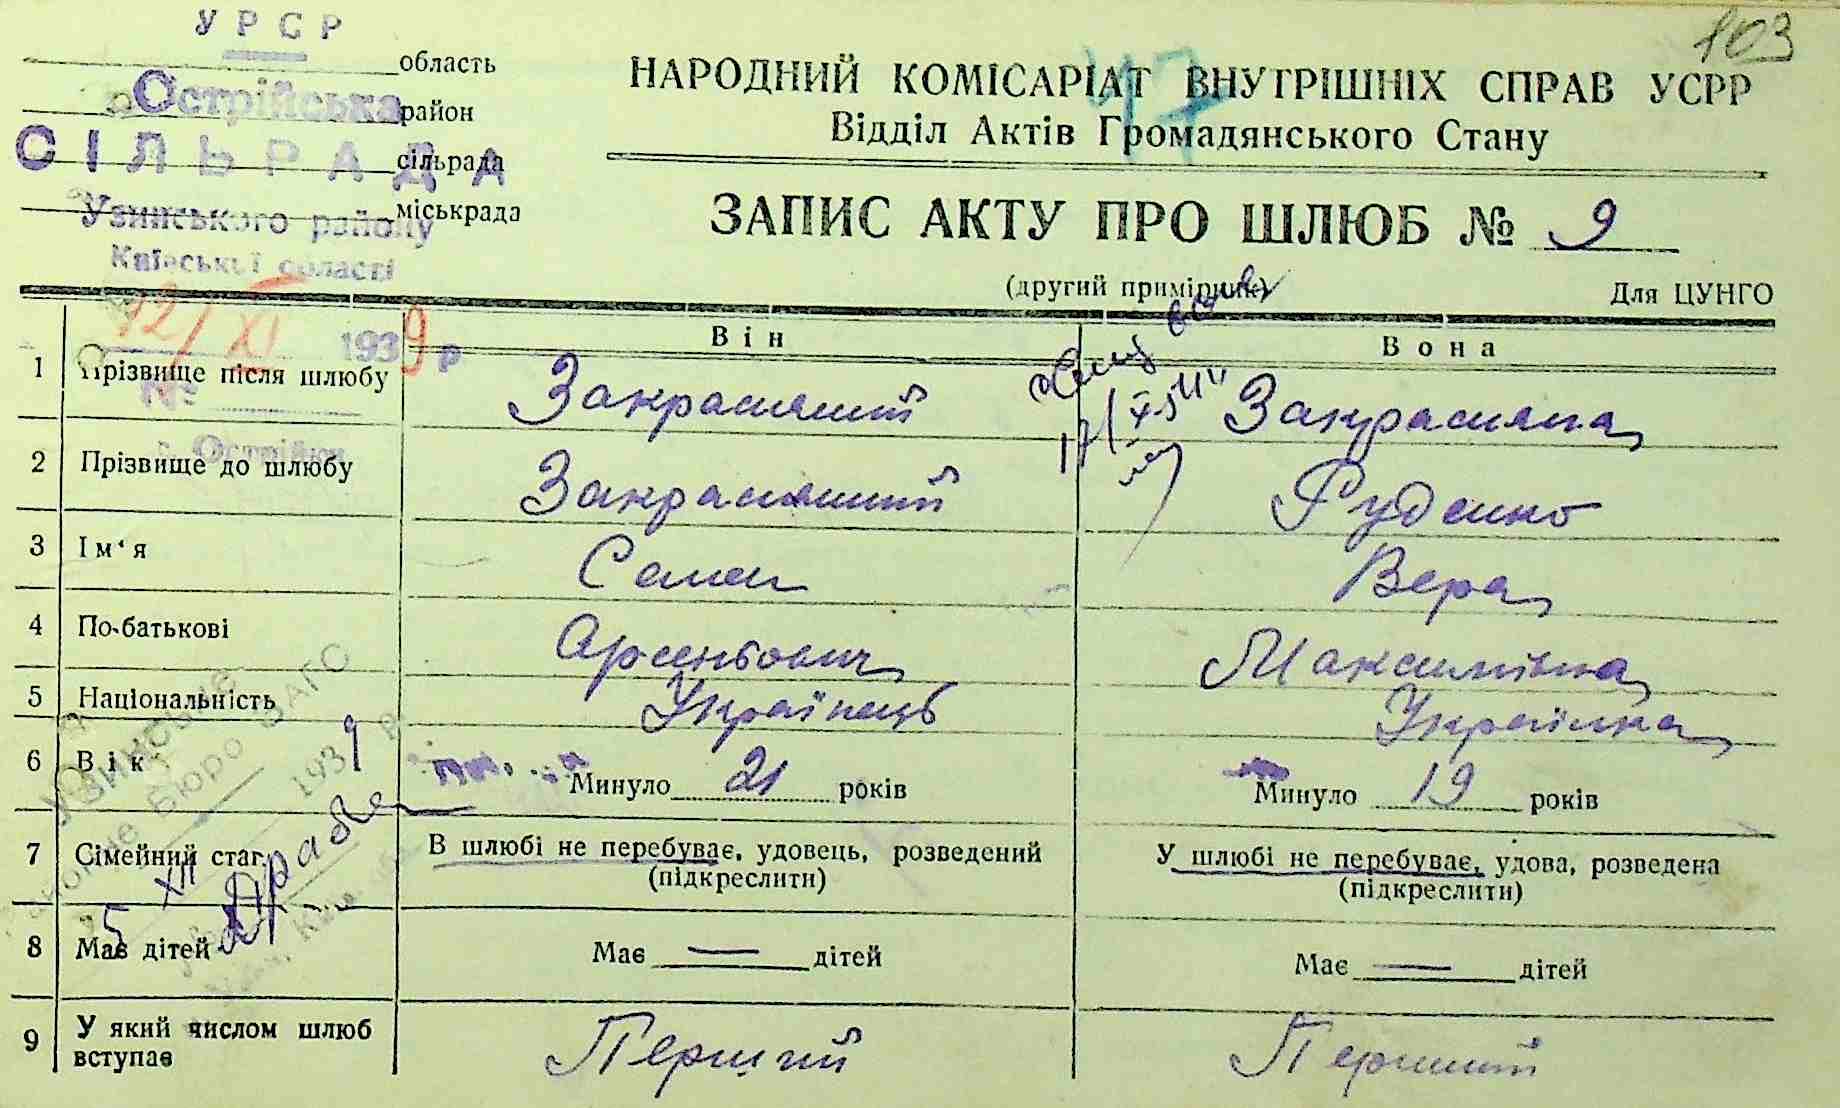 103
УРСР
область
Острійська
район
СІЛЬРАДА
сільрада
міськрада
Узинського району
Київської області
НАРОДНИЙ КОМІСАРІАТ ВНУТРІШНІХ СПРАВ УСРР
47
Відділ Актів Громадянського Стану
ЗАПИС АКТУ ПРО ШЛЮБ № 9
(другий примірник)
Для ЦУНГО
12/XI 1939 р
№
с. Острійки
Він
Вона
1 Прізвище після шлюбу Закрасняний Закрасняна
2 Прізвище до шлюбу Закрасняний Руденко
3 Ім'я Семен Вера
4 По-батькові Арсеньович Максимівна
5 Національність Українець Українка
6 Вік Минуло 21 років Минуло 19 років
7 Сімейний стан В шлюбі не перебуває, удовець, розведений У шлюбі не перебуває, удова, розведена
(підкреслити) (підкреслити)
8 Має дітей Має — дітей Має — дітей
9 У який числом шлюб вступає Перший Перший
Узинське
бюро ЗАГС
1939 р
5 XII